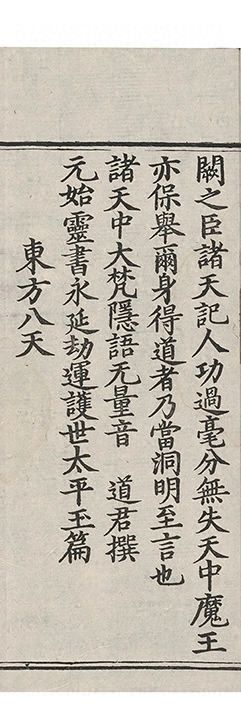 闕之臣諸天記人功過毫分無失天中魔王
亦保舉爾身得道者乃當洞明至言也
諸天中大梵隱語无量音　道君撰
元始靈書永延劫運護世太平玉篇
東方八天